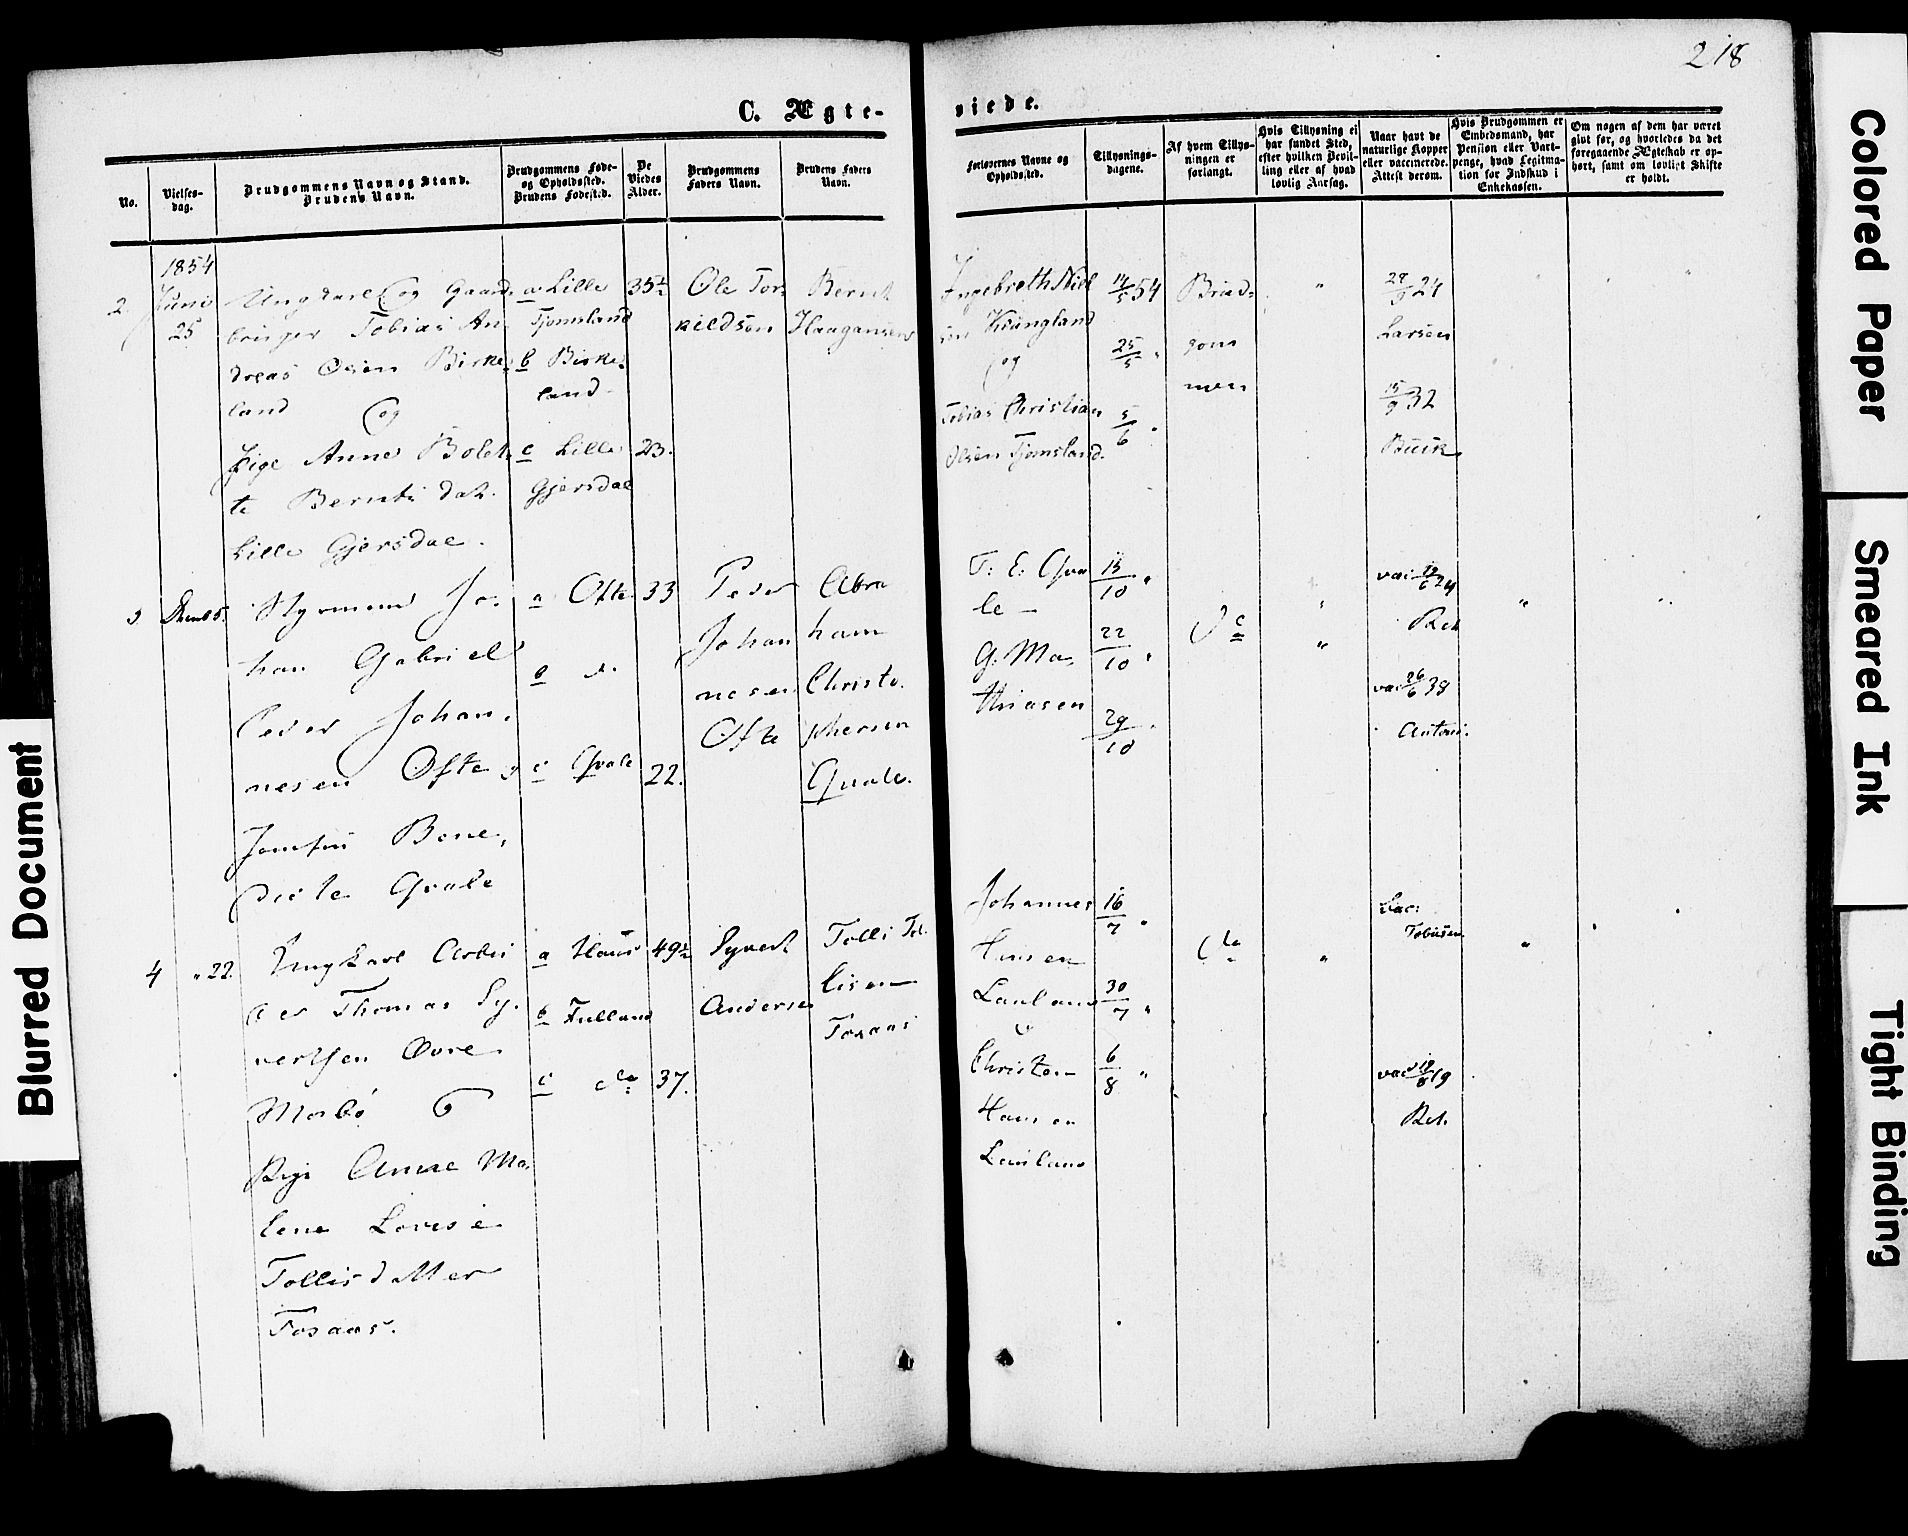 218
C. Ægte-
viede.
No.
Vielses-
dag.
Brudgommens Navn og Stand.
Brudens Navn.
Brudgommens Føde-
og Opholdssted.
Brudens Fødested.
De
Viedes
Alder.
Brudgommens
Faders Navn.
Brudens Faders
Navn.
Forlovernes Navne og
Opholdssted.
Tillysnings-
dagene.
Af hvem Tillys-
ningen er
forlangt.
Hvis Tillysning ei
har fundet Sted,
efter hvilken Bevil-
ling eller af hvad
lovlig Aarsag.
Naar havt de
naturlige Kopper
eller vaccinerede.
Attest derom.
Hvis Brudgommen er
Embedsmand, har
Pension eller Vart-
penge, hvad Legitima-
tion for Indskud i
Enkekassen.
Om nogen af dem har været
gift før, og hvorledes da det
foregaaende Ægteskab er op-
hørt, samt om lovligt Skifte
er holdt.
1854
2.
Juni
25
Ungkarl og Gaard-
bruger Tobias An-
dreas Olsen Birke-
land og
Pige Anne Bolet-
te Bernts dat.
Lille Gjersdal.
a Lille
Tjomsland
b Birke-
land
c Lille
Gjersdal
35½
23.
Ole Tor-
kildsen
Bernt
Haagansen
Ingebreth Niel
sen
og
Tobias Christian
Olsen Tjomsland.
14/5 54
25/5 "
5/6 "
Brud-
gom
men
"
24
Larsen
15/9 32
Buck
3.
5.
Styrmand Jo-
han Gabriel
Peder Johan-
nesen Ofte
Bene-
dicte Qvale
a Ofte
b d.
c Qvale
33
22.
Peder
Johan
nesen
Ofte
Abra
ham
Christo-
phersen
Qvale.
T: E: Qva
le
G: Ma-
thiasen
15/10 "
22/10 "
29/10 "
"
"
24
vac 26/6 38
"
4
" 22.
Ungkarl Arbei
der Thomas Sy-
vertsen Øvre
Mosbø
Pige Anne Ma-
lene Lovise
Tollisdatter
Fosaas.
a
b
c do
49½
37.
Syvert
Andersen
Tolli Tol-
lisen
Fosaas
Johannes
Hansen
Lauland
Christen
Hansen
Lauland
16/7 "
30/7 "
6/8 "
"
Vac:
Tobiesen.
19
"
Colored Paper
Smeared Ink
Tight Binding
Blurred Document